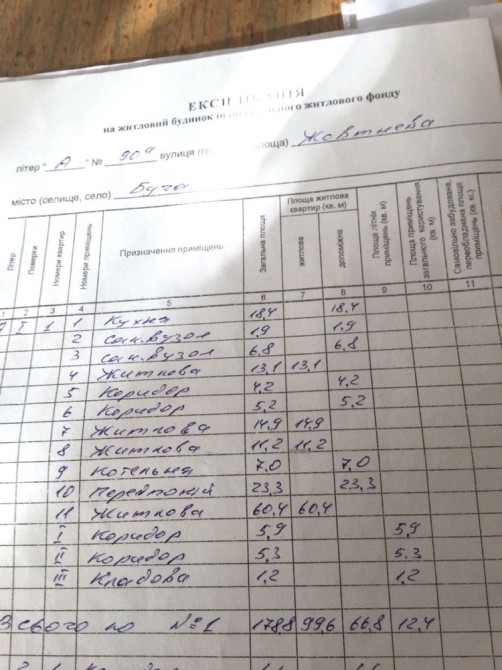 ЕКСПЛІКАЦІЯ
на житловий будинок індивідуального житлового фонду
літер " А " № 90а вулиця (площа) Жовтнева
місто (селище, село) Буча
Літер Поверхи Номери квартир Номери приміщень Призначення приміщень Загальна площа Площа житлова квартир (кв. м) житлова допоміжна Площа літніх приміщень (кв. м) Площа приміщень загального користування (кв. м) Самовільно збудована, переобладнана площа приміщень (кв. м.)
1 2 3 4 5 6 7 8 9 10 11
А І 1 1 Кухня 18,4 18,4
2 сан.вузол 1,9 1,9
3 сан.вузол 6,8 6,8
4 Житлова 13,1 13,1
5 Коридор 4,2 4,2
6 Коридор 5,2 5,2
7 Житлова 14,9 14,9
8 Житлова 11,2 11,2
9 Котельня 7,0 7,0
10 23,3 23,3
11 Житлова 60,4 60,4
І Коридор 5,9 5,9
ІІ Коридор 5,3 5,3
ІІІ Кладова 1,2 1,2
Всього по №1 178,8 99,6 66,8 12,4